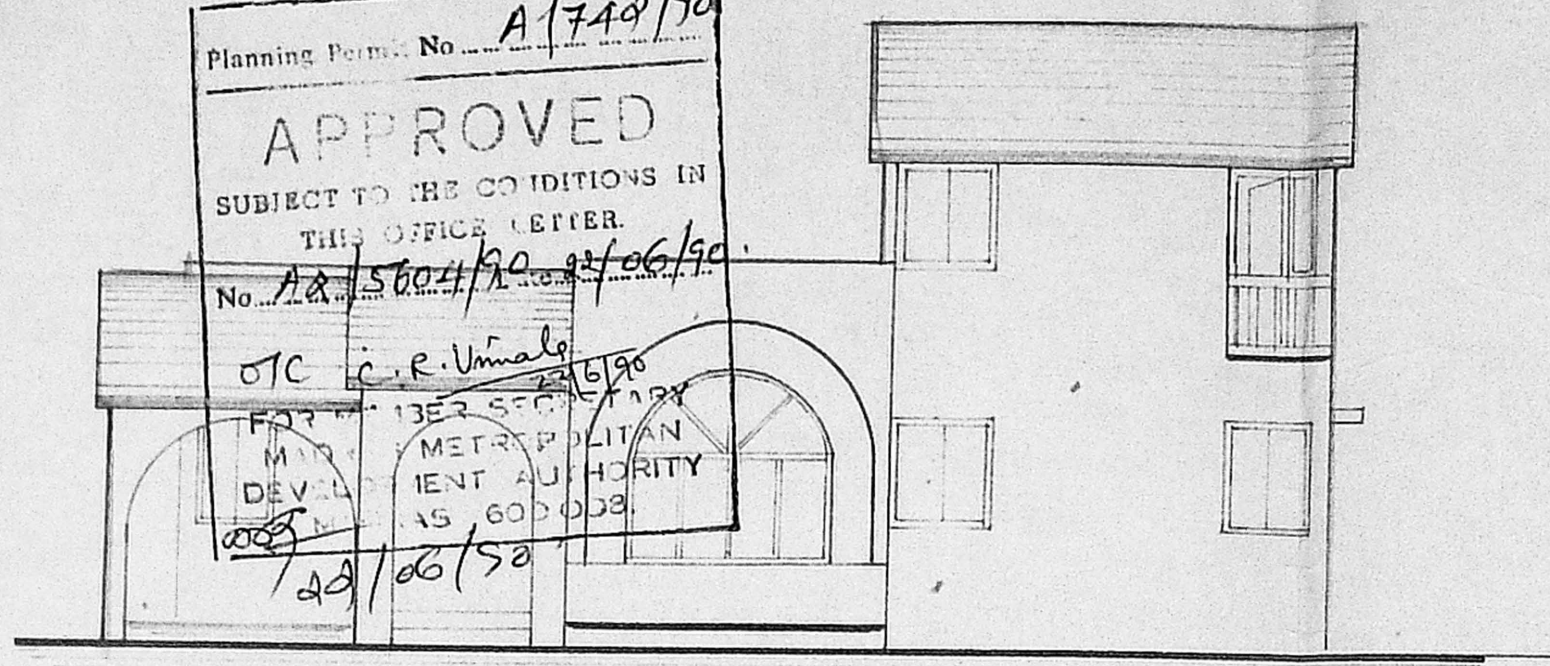 Planning Permit No A/742/90
APPROVED
SUBJECT TO THE CONDITIONS IN
THIS OFFICE LETTER.
No A2/5604/90 22/06/90.
C.R. Unnale
22/6/90
FOR MEMBER SECRETARY
MADRAS METROPOLITAN
DEVELOPMENT AUTHORITY
MADRAS 600 008.
22/06/90